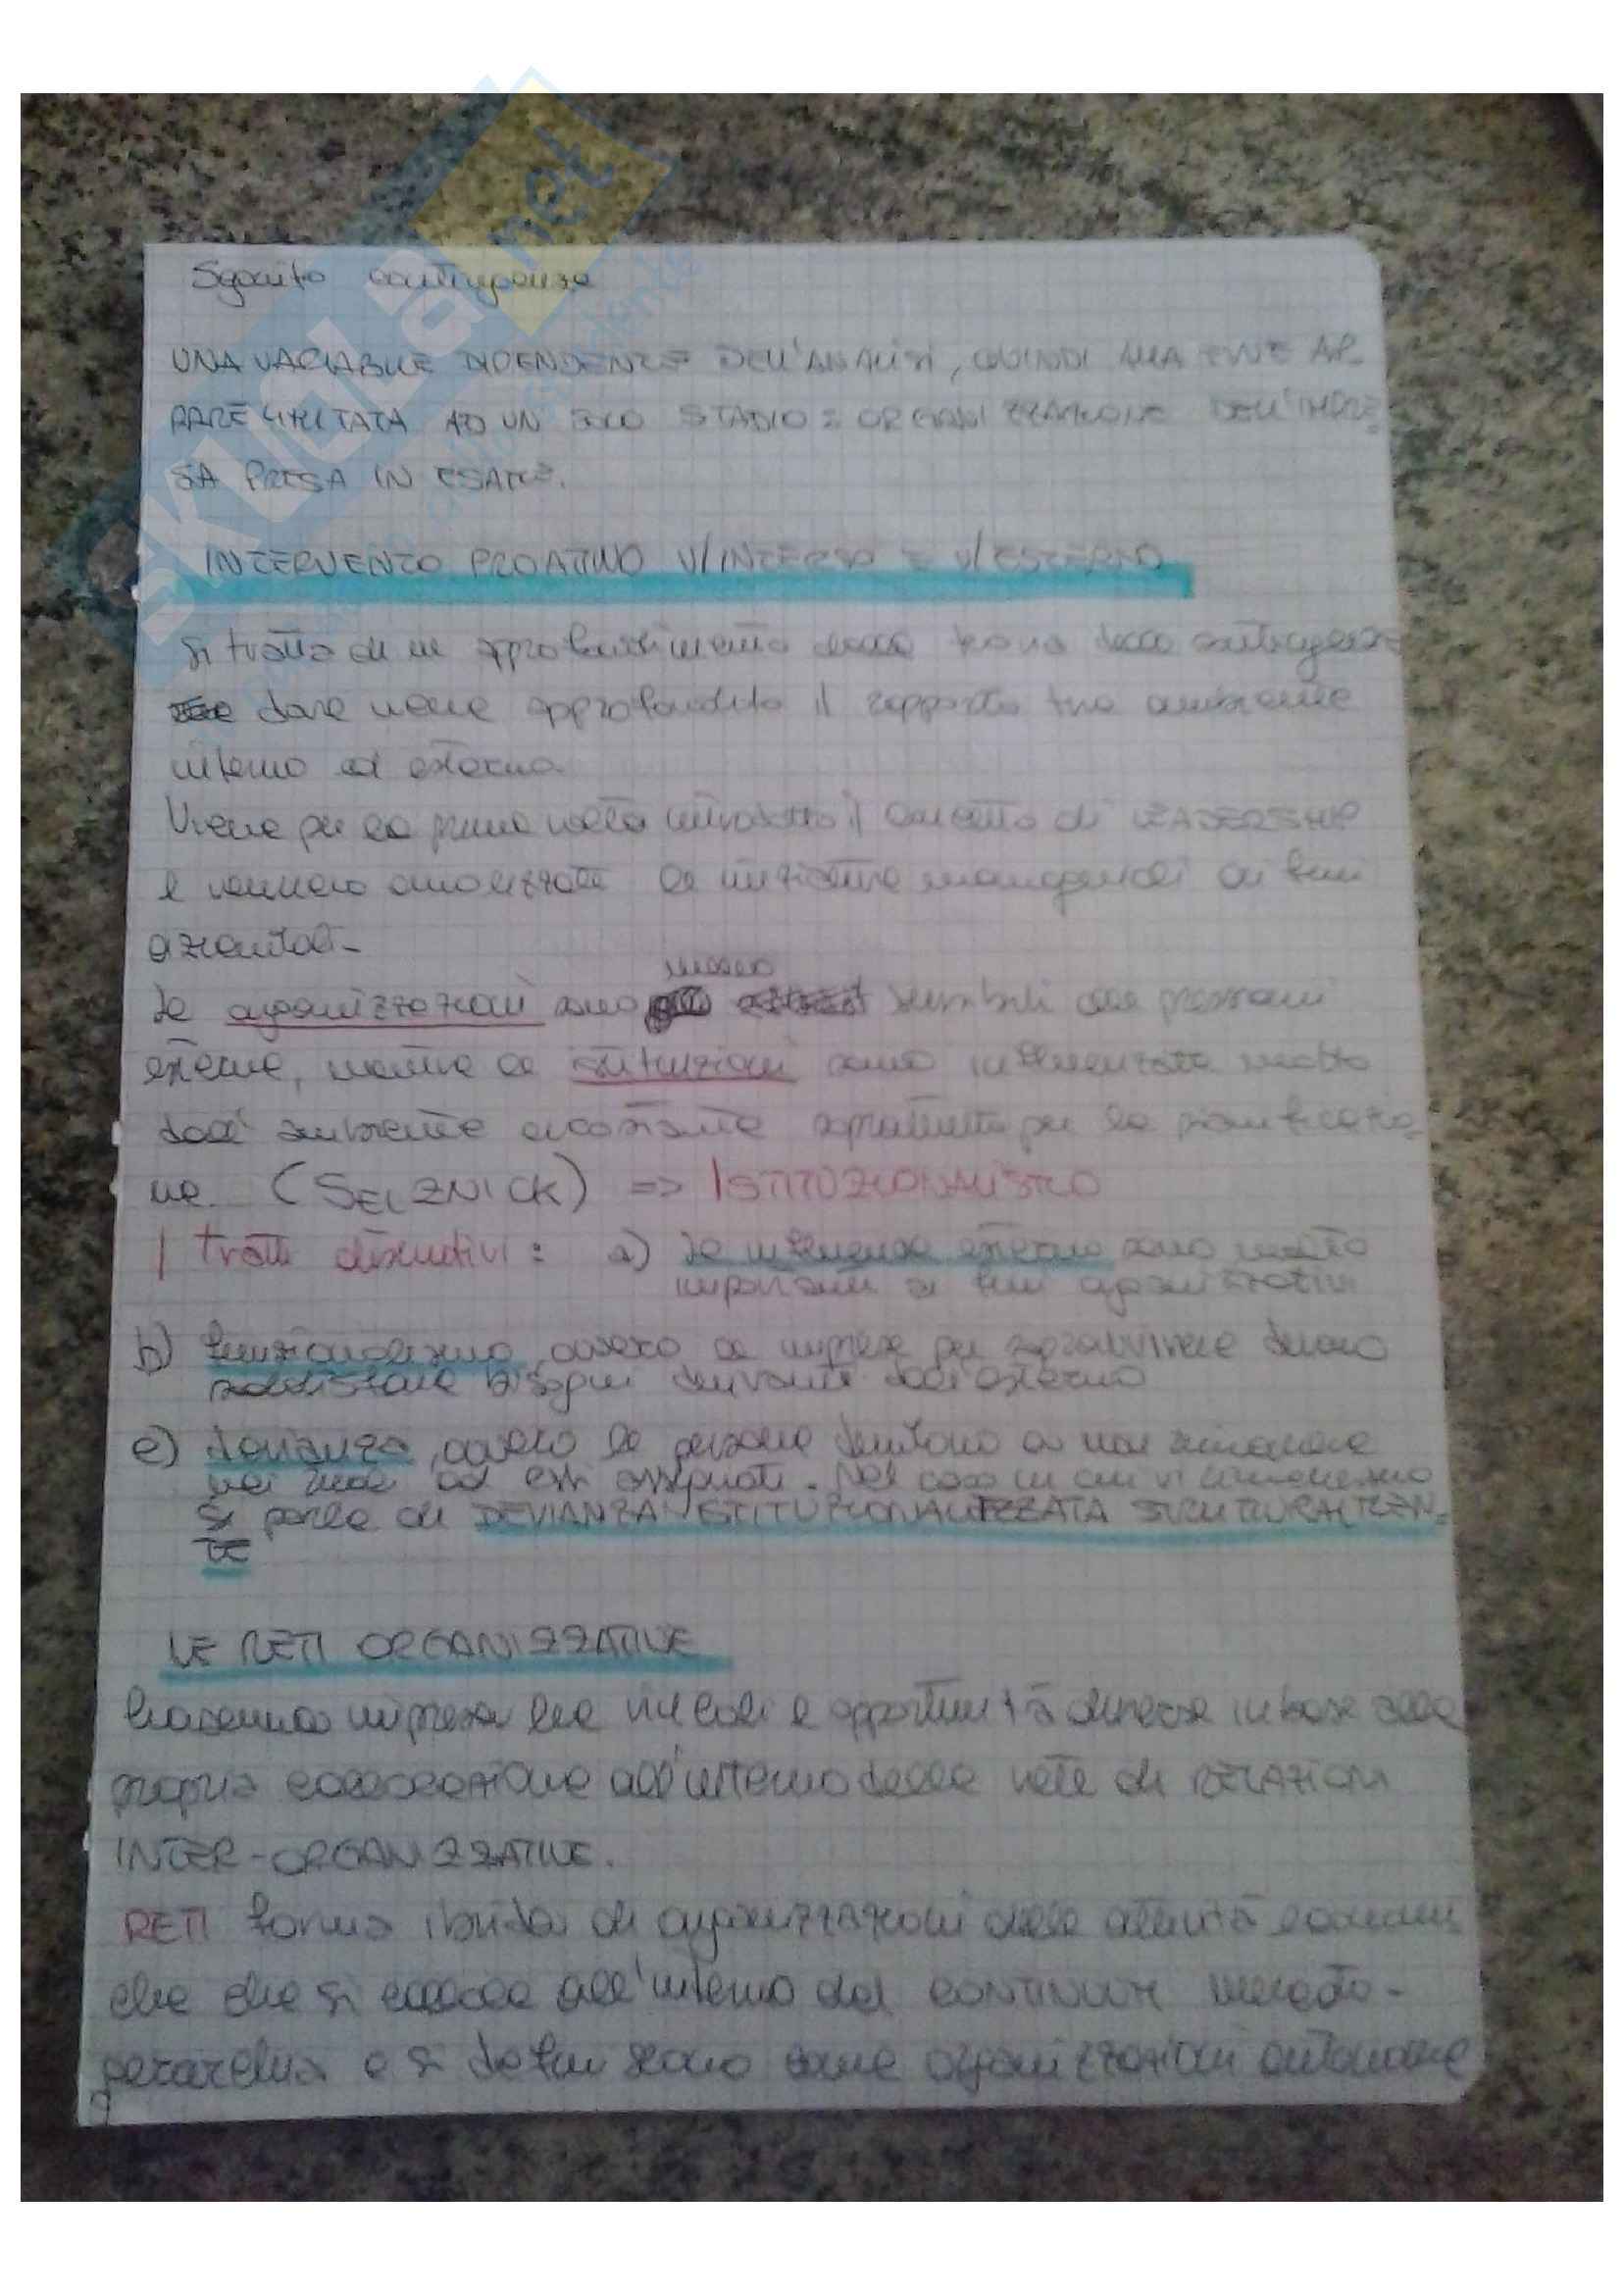 Seguito contingenza
UNA VARIABILE DIPENDENTE DELL'ANALISI, QUINDI ALLA FINE AP-
PARE LIMITATA AD UN SOLO STADIO: ORGANIZZAZIONE DELL'IMPRE=
SA PRESA IN ESAME.
INTERVENTO PROATTIVO V/INTERNO E V/ESTERNO
Si tratta di un approfondimento della teoria della contingenza
dove viene approfondito il rapporto tra ambiente
interno ed esterno.
Viene per la prima volta introdotto il concetto di LEADERSHIP
e vengono analizzate le iniziative manageriali ai fini
aziendali.
meno
Le organizzazioni sono sensibili alle pressioni
esterne, mentre le istituzioni sono influenzate molto
dall'ambiente circostante soprattutto per la pianificazio=
ne (SELZNICK) => ISTITUZIONALISMO
I tratti distintivi: a) Le influenze esterne sono molto
importanti ai fini organizzativi
b) funzionalismo, ovvero le imprese per sopravvivere devono
soddisfare bisogni derivanti dall'esterno
c) devianza, ovvero le persone tendono a non rimanere
nei ruoli ad essi assegnati. Nel caso in cui vi rimanessero
si parla di DEVIANZA ISTITUZIONALIZZATA STRUTTURALMEN=
TE
LE RETI ORGANIZZATIVE
Ciascuna impresa ha vincoli e opportunità diverse in base alla
propria collocazione all'interno della rete di RELAZIONI
INTER-ORGANIZZATIVE.
RETI forma ibrida di organizzazioni delle attività economi
che che si colloca all'interno del CONTINUUM mercato-
gerarchia e si definiscono come organizzazioni autonome